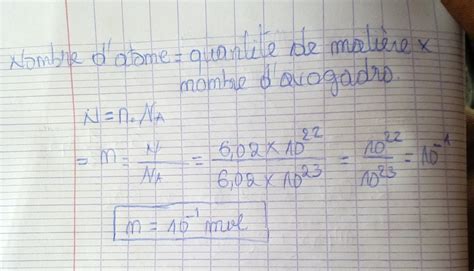 Nombre d'atome = quantité de matière x
nombre d'avogadro.
N = n . NA
= n = N/NA = 6,02 x 10²² / 6,02 x 10²³ = 10²² / 10²³ = 10⁻¹
n = 10⁻¹ mol